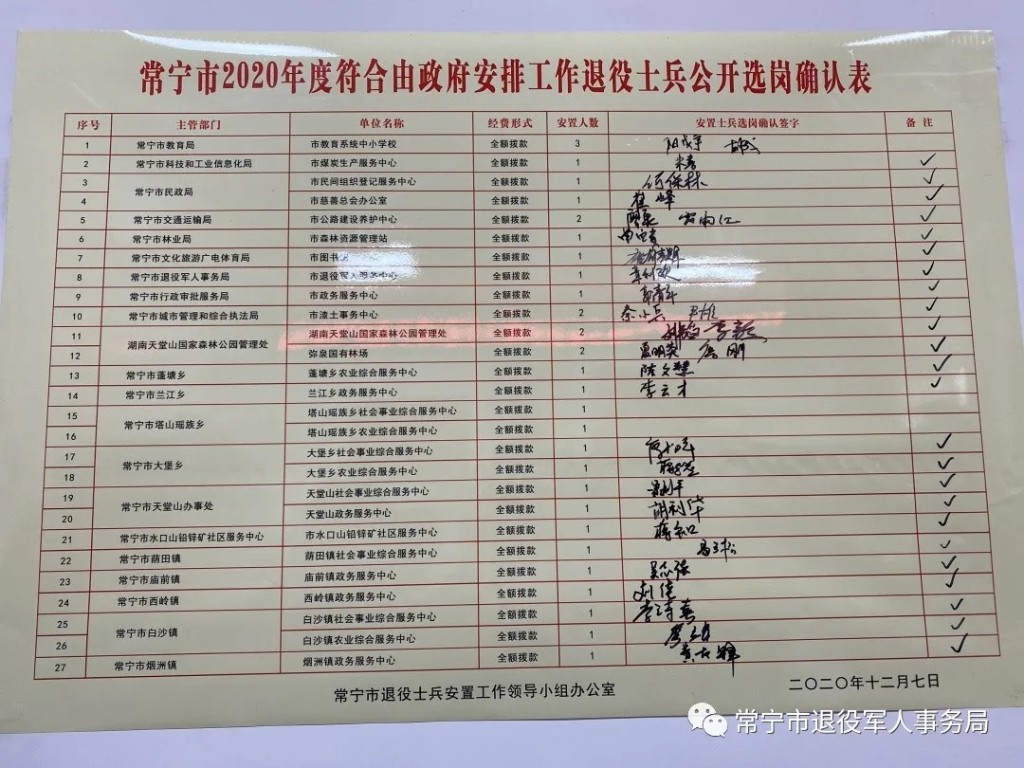 常宁市2020年度符合由政府安排工作退役士兵公开选岗确认表
序号 主管部门 单位名称 经费形式 安置人数 安置士兵选岗确认签字 备注
1 常宁市教育局 市教育系统中小学校 全额拨款 3
2 常宁市科技和工业信息化局 市煤炭生产服务中心 全额拨款 1
3 常宁市民政局 市民间组织登记服务中心 全额拨款 1 何保林
4 市慈善总会办公室 全额拨款 1
5 常宁市交通运输局 市公路建设养护中心 全额拨款 2
6 常宁市林业局 市森林资源管理站 全额拨款 1
7 常宁市文化旅游广电体育局 市图书 全额拨款 1
8 常宁市退役军人事务局 市退役军人服务中心 全额拨款 1
9 常宁市行政审批服务局 市政务服务中心 全额拨款 1
10 常宁市城市管理和综合执法局 市渣土事务中心 全额拨款 2 余小兵
11 湖南天堂山国家森林公园管理处 湖南天堂山国家森林公园管理处 全额拨款 2
12 弥泉国有林场 全额拨款 2
13 常宁市蓬塘乡 蓬塘乡农业综合服务中心 全额拨款 1
14 常宁市兰江乡 兰江乡政务服务中心 全额拨款 1 李云才
15 常宁市塔山瑶族乡 塔山瑶族乡社会事业综合服务中心 全额拨款 1
16 塔山瑶族乡农业综合服务中心 全额拨款 1
17 常宁市大堡乡 大堡乡社会事业综合服务中心 全额拨款 1
18 大堡乡农业综合服务中心 全额拨款 1
19 常宁市天堂山办事处 天堂山社会事业综合服务中心 全额拨款 1
20 天堂山政务服务中心 全额拨款 1 胡利华
21 常宁市水口山铅锌矿社区服务中心 市水口山铅锌矿社区服务中心 全额拨款 1
22 常宁市荫田镇 荫田镇社会事业综合服务中心 全额拨款 1
23 常宁市庙前镇 庙前镇政务服务中心 全额拨款 1
24 常宁市西岭镇 西岭镇政务服务中心 全额拨款 1
25 常宁市白沙镇 白沙镇社会事业综合服务中心 全额拨款 1
26 白沙镇农业综合服务中心 全额拨款 1
27 常宁市烟洲镇 烟洲镇政务服务中心 全额拨款 1
常宁市退役士兵安置工作领导小组办公室
二〇二〇年十二月七日
常宁市退役军人事务局